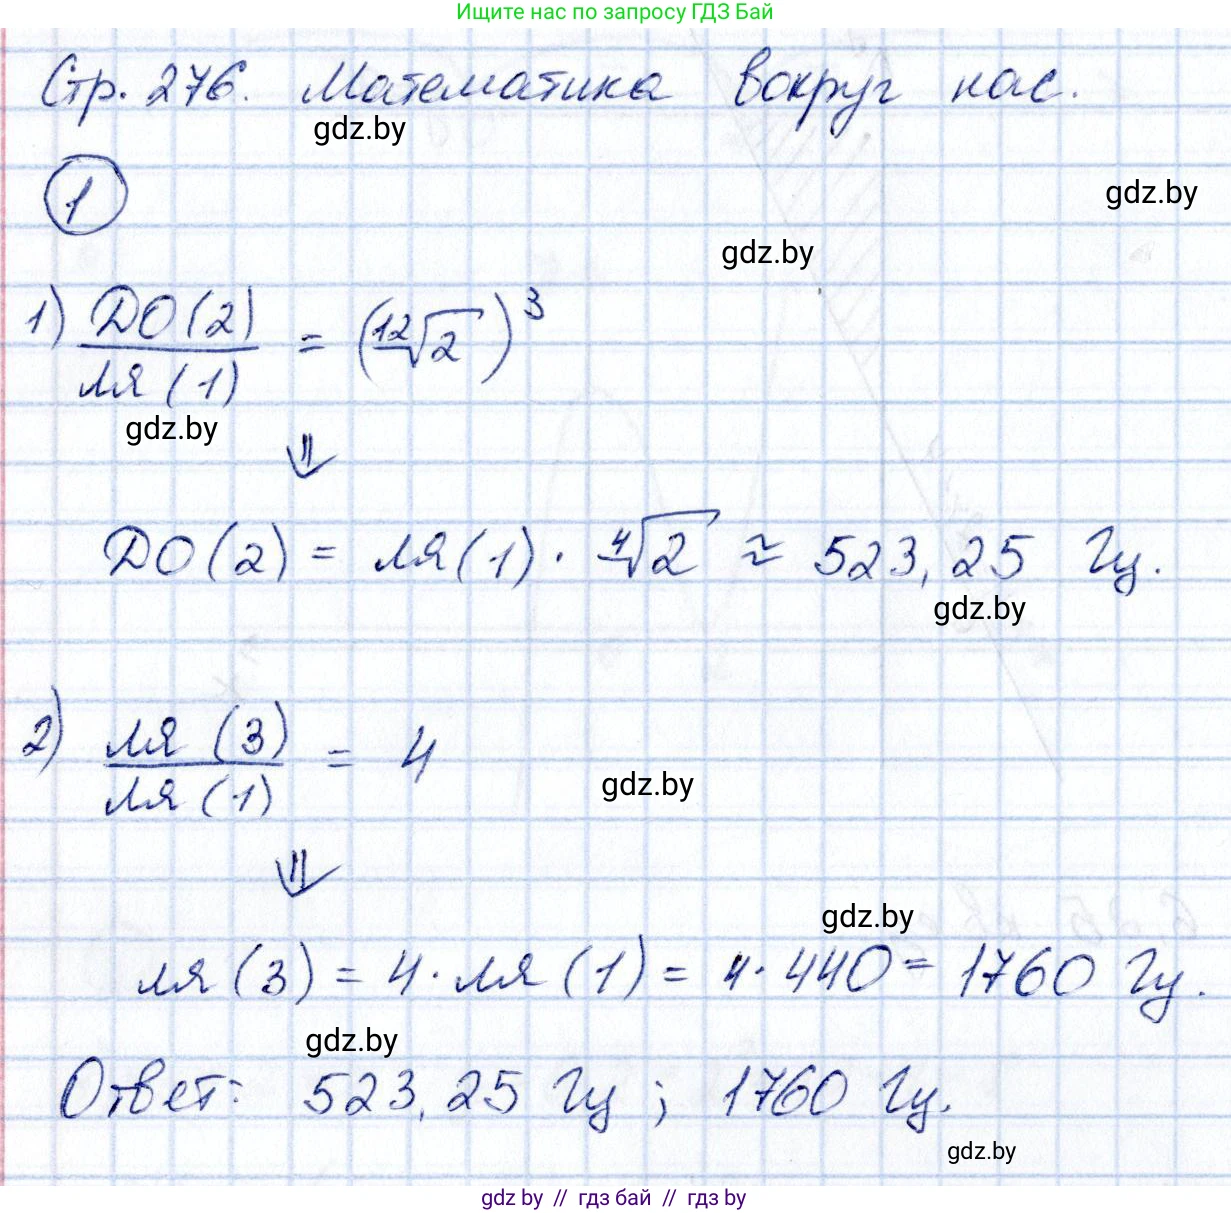 Ищите нас по запросу ГДЗ Бай
Стр. 276. Математика вокруг нас.
gdz.by
1
gdz.by
gdz.by
1) ДО(2) / ля(1) = (¹²√2)³
gdz.by
⇓
ДО(2) = ля(1) · ⁴√2 ≈ 523,25 Гц.
gdz.by
2) ля(3) / ля(1) = 4
gdz.by
⇓
gdz.by
ля(3) = 4 · ля(1) = 4 · 440 = 1760 Гц.
gdz.by
Ответ: 523,25 Гц; 1760 Гц.
gdz.by
gdz.by // гдз бай // гдз by